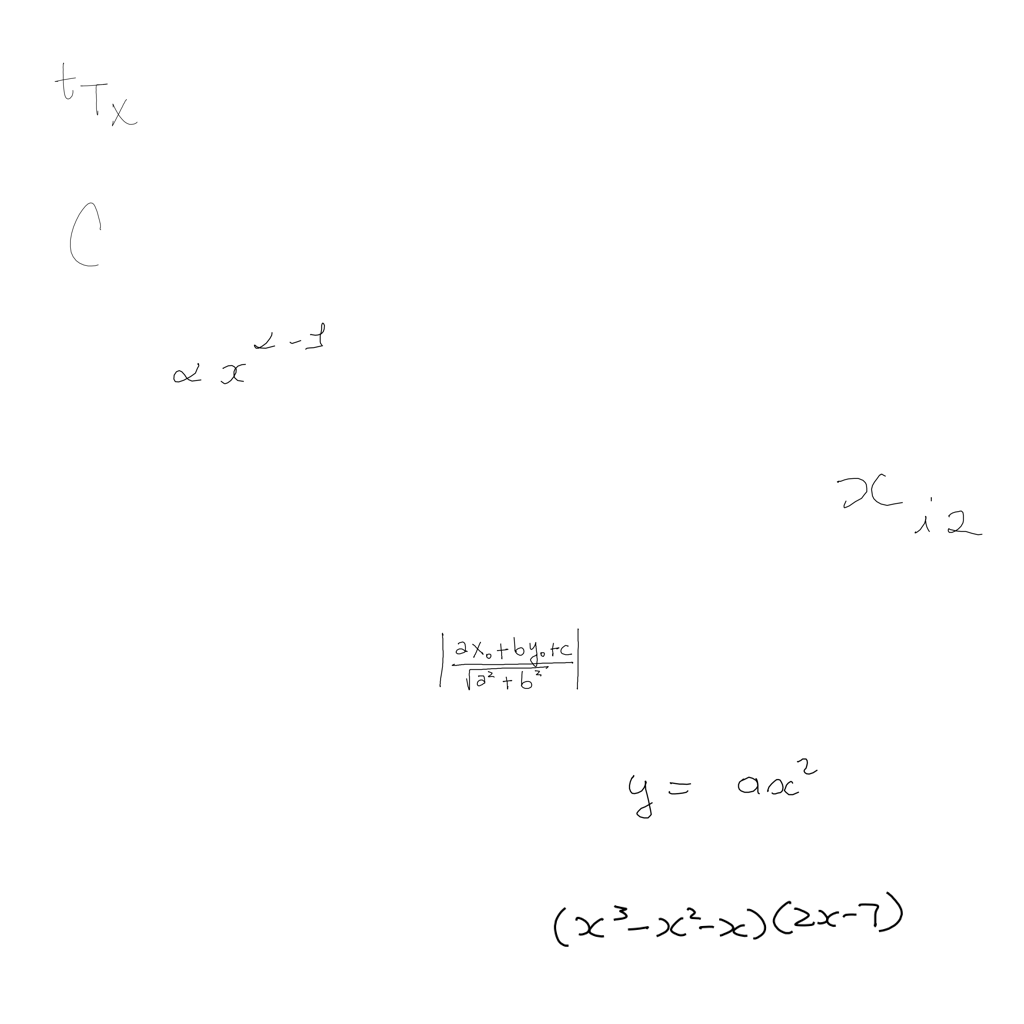 t_{T_x}
C
αx^{α-1}
x_{i2}
|\frac{ax_0+by_0+c}{\sqrt{a^2+b^2}}|
y = ax^2
(x^3-x^2-x)(2x-7)